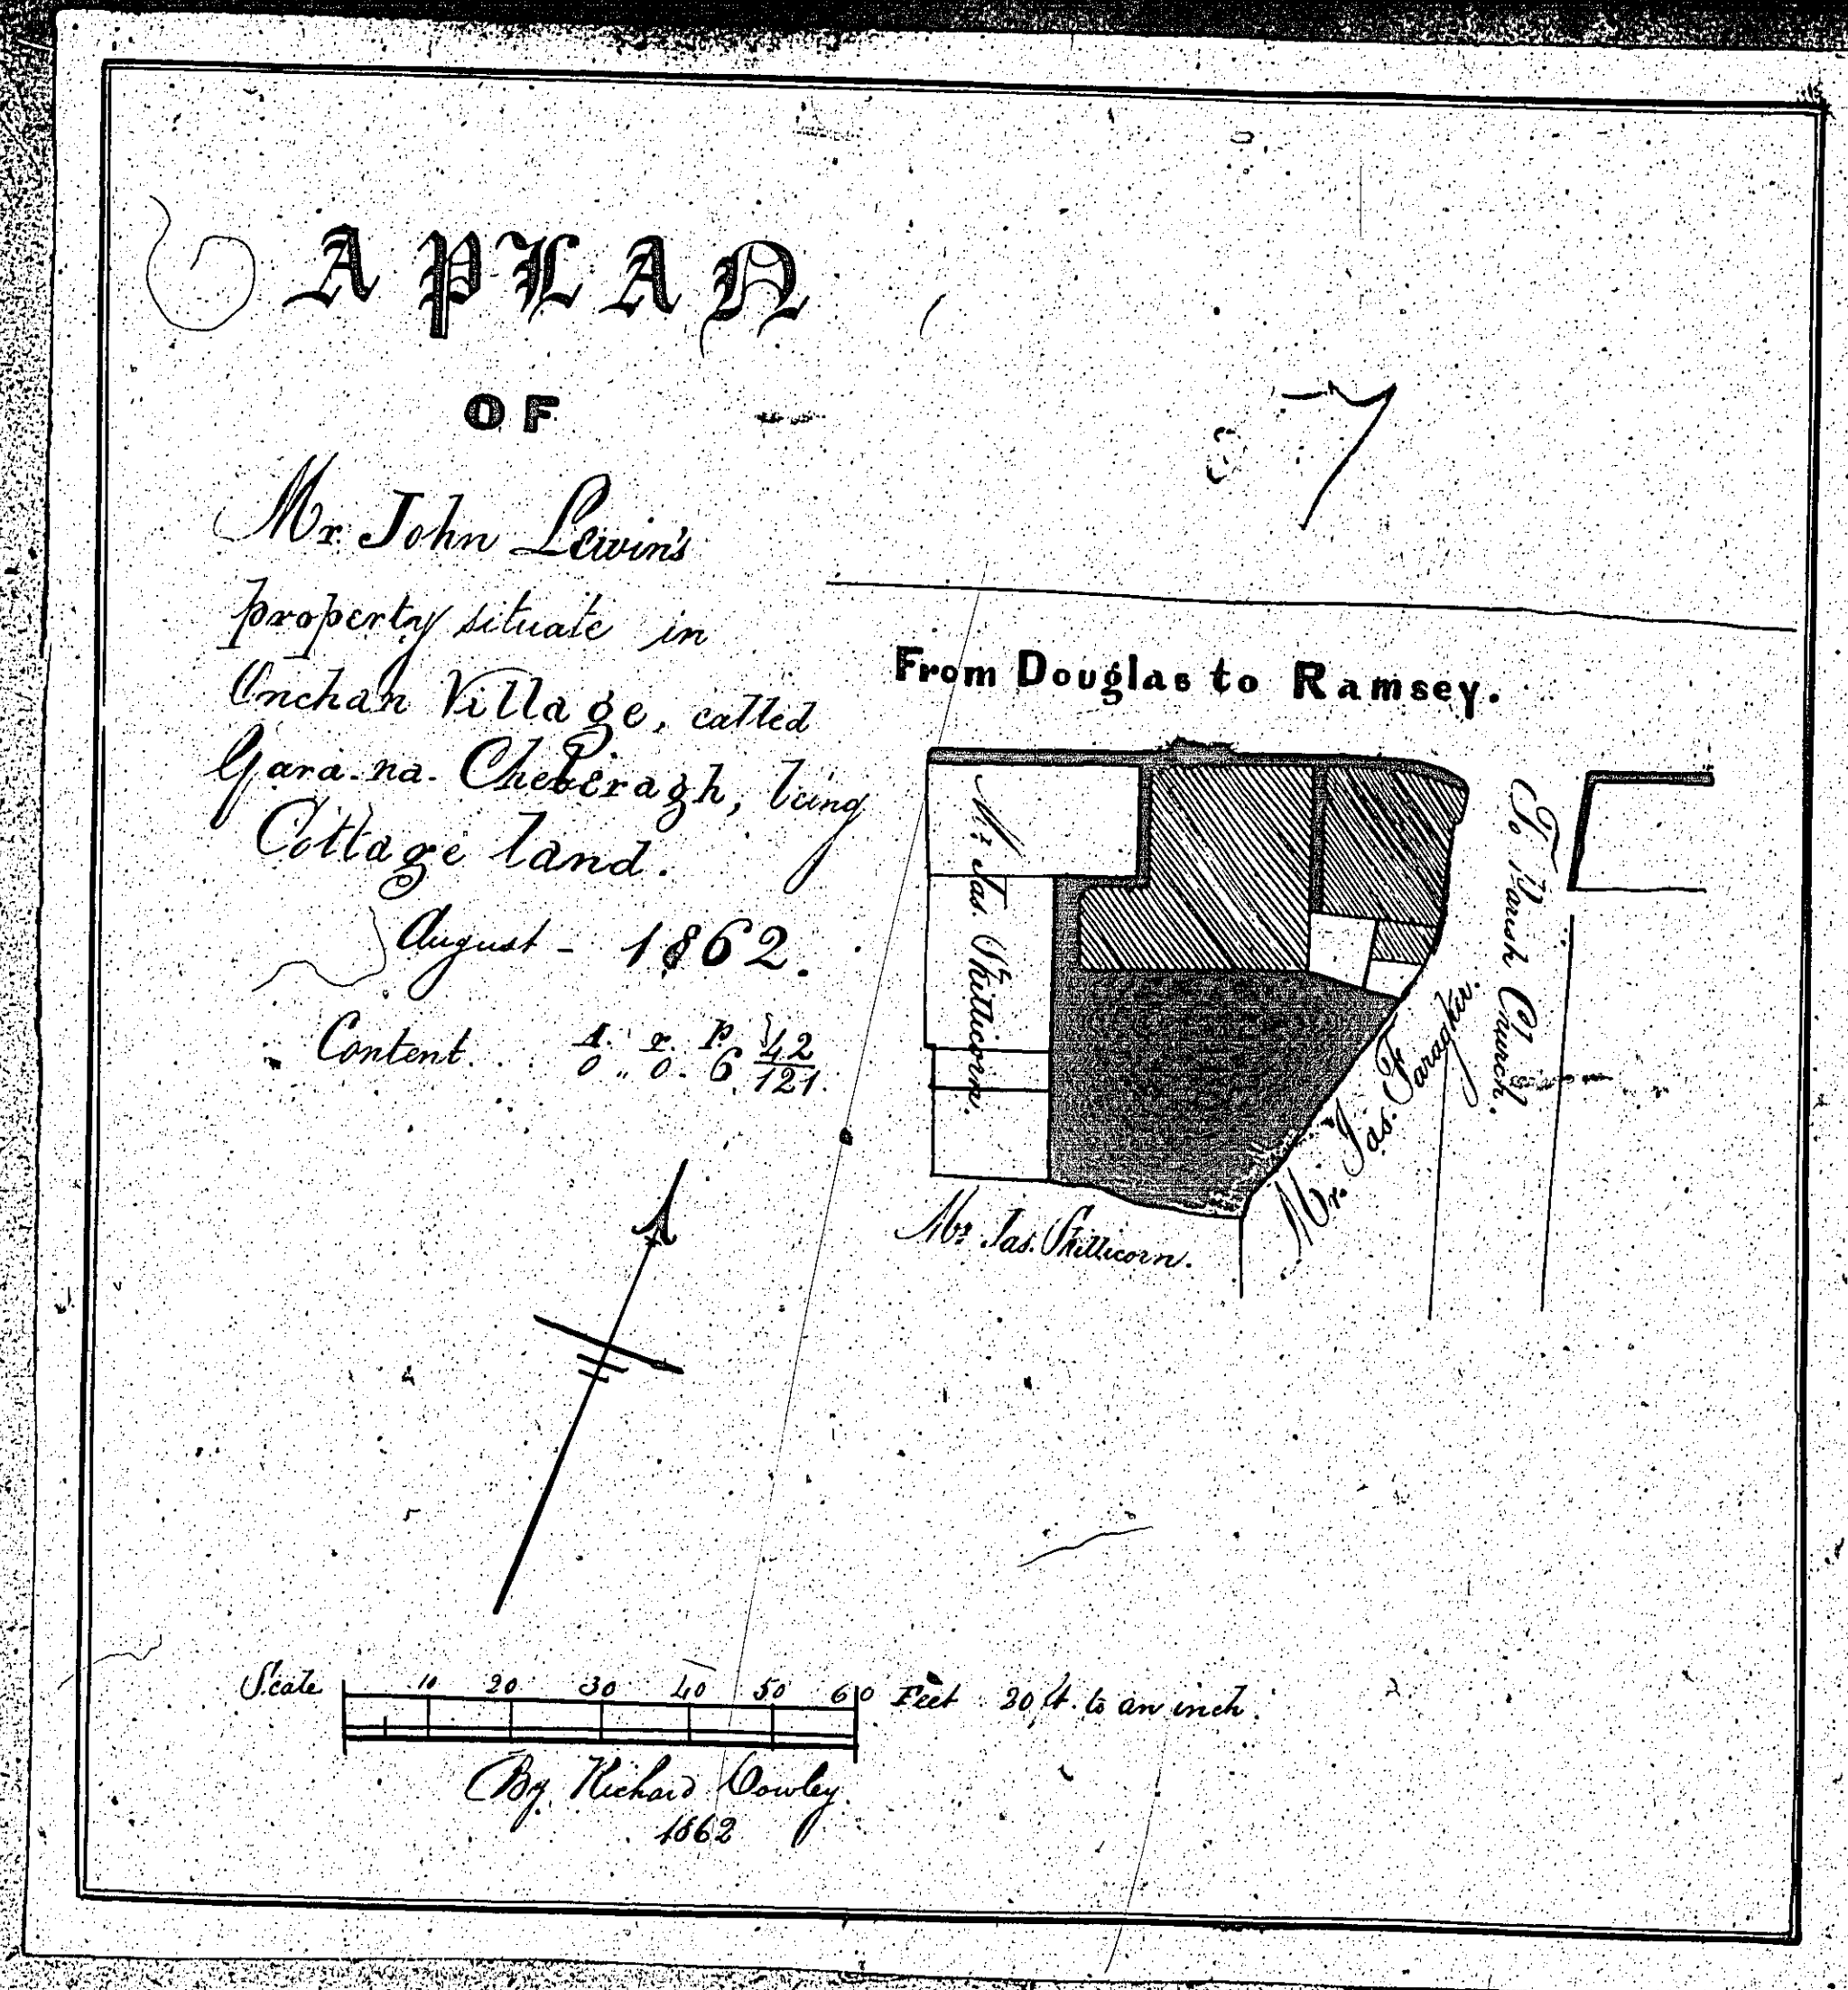 A PLAN
OF
Mr. John Lewin's
property situate in
Onchan Village, called
Gara-na-Cheberagh, being
Cottage land.
August - 1862.
Content.. A. r. P.
0 .. 0 - 6 42/121.
7
From Douglas to Ramsey.
Mr. Jas. Skillicorn.
To Parish Church.
Mr. Jas. Faragher.
Mr. Jas. Skillicorn.
Scale 10 20 30 40 50 60 Feet 20 ft. to an inch.
By Richard Cowley.
1862